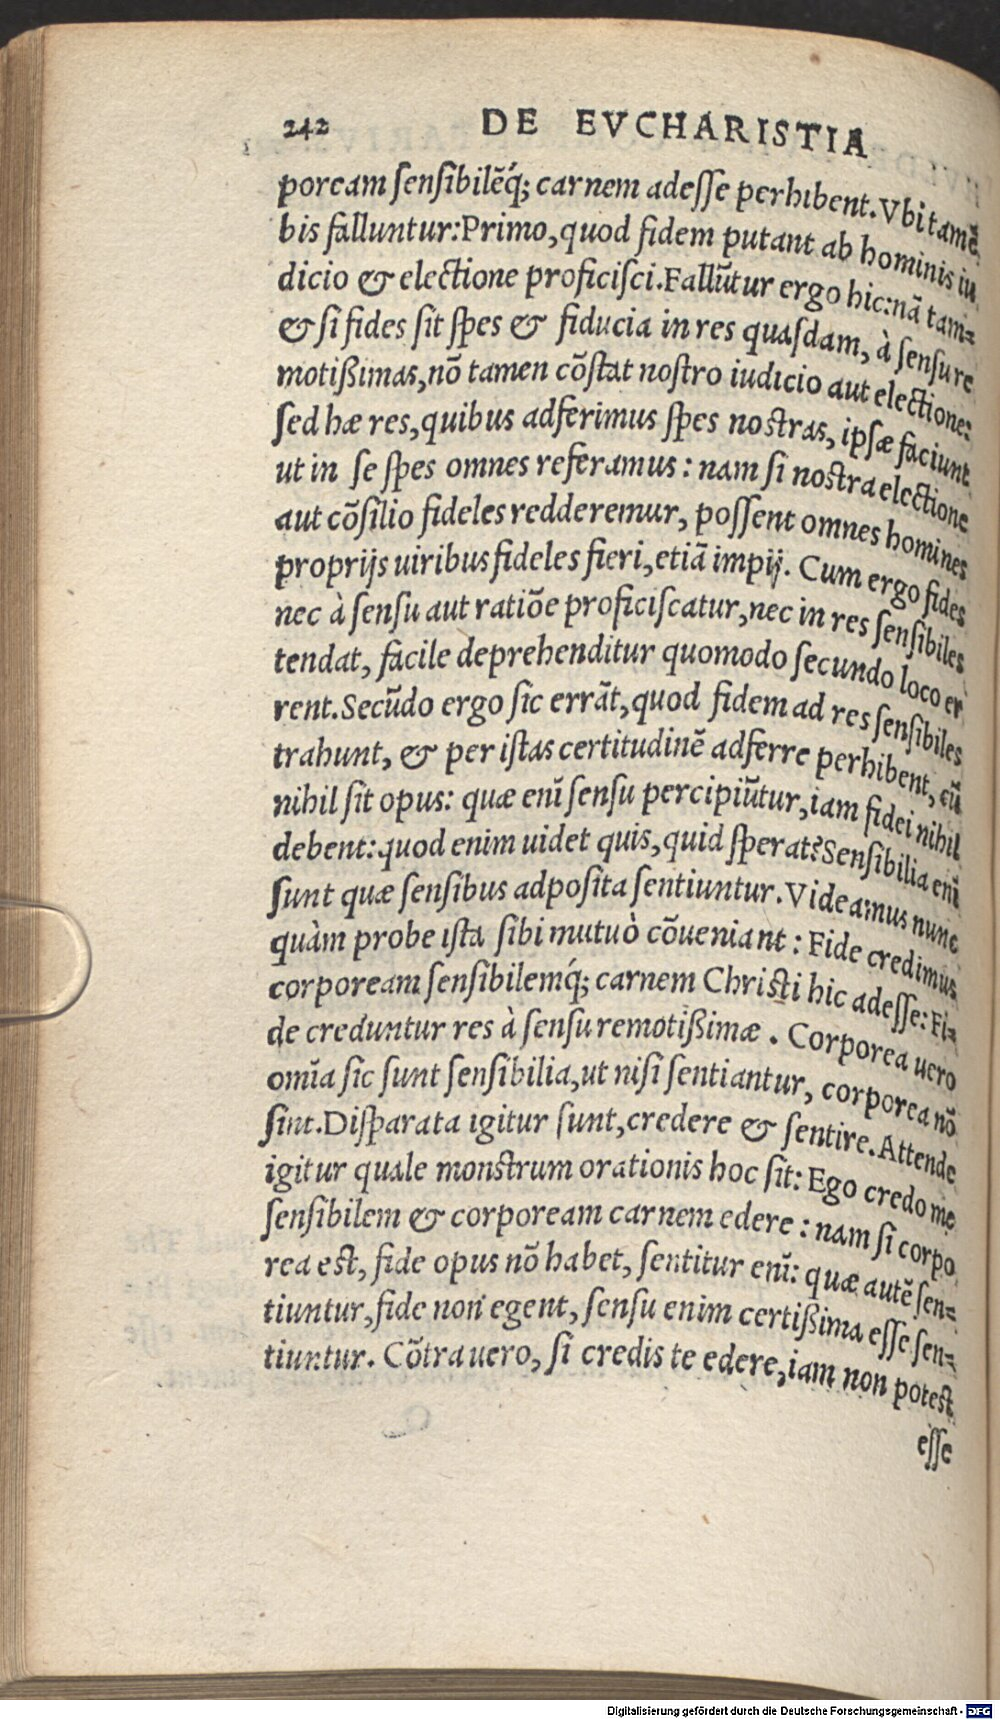 242 DE EVCHARISTIA
poream sensibilẽq́; carnem adesse perhibent. Vbi tamẽ
bis falluntur: Primo, quod fidem putant ab hominis iu
dicio & electione proficisci. Fallũtur ergo hic: nã tam=
& si fides sit spes & fiducia in res quasdam, à sensu re
motißimas, nõ tamen cõstat nostro iudicio aut electione:
sed hæ res, quibus adferimus spes nostras, ipsæ faciunt
ut in se spes omnes referamus: nam si nostra electione
aut cõsilio fideles redderemur, possent omnes homines
proprijs uiribus fideles fieri, etiã impij. Cum ergo fides
nec à sensu aut ratiõe proficiscatur, nec in res sensibiles
tendat, facile deprehenditur quomodo secundo loco er
rent. Secũdo ergo sic errãt, quod fidem ad res sensibiles
trahunt, & per istas certitudinẽ adferre perhibent, cũ
nihil sit opus: quæ enĩ sensu percipiũtur, iam fidei nihil
debent: quod enim uidet quis, quid sperat? Sensibilia enĩ
sunt quæ sensibus adposita sentiuntur. Videamus nunc
quàm probe ista sibi mutuò cõueniant: Fide credimus
corpoream sensibilemq́; carnem Christi hic adesse: Fi=
de creduntur res à sensu remotißimæ. Corporea uero
omĩa sic sunt sensibilia, ut nisi sentiantur, corporea nõ
sint. Disparata igitur sunt, credere & sentire. Attende
igitur quale monstrum orationis hoc sit: Ego credo me
sensibilem & corpoream carnem edere: nam si corpo
rea est, fide opus nõ habet, sentitur enĩ: quæ autẽ sen=
tiuntur, fide non egent, sensu enim certißima esse sen=
tiuntur. Cõtra uero, si credis te edere, iam non potest
esse
Digitalisierung gefördert durch die Deutsche Forschungsgemeinschaft - DFG